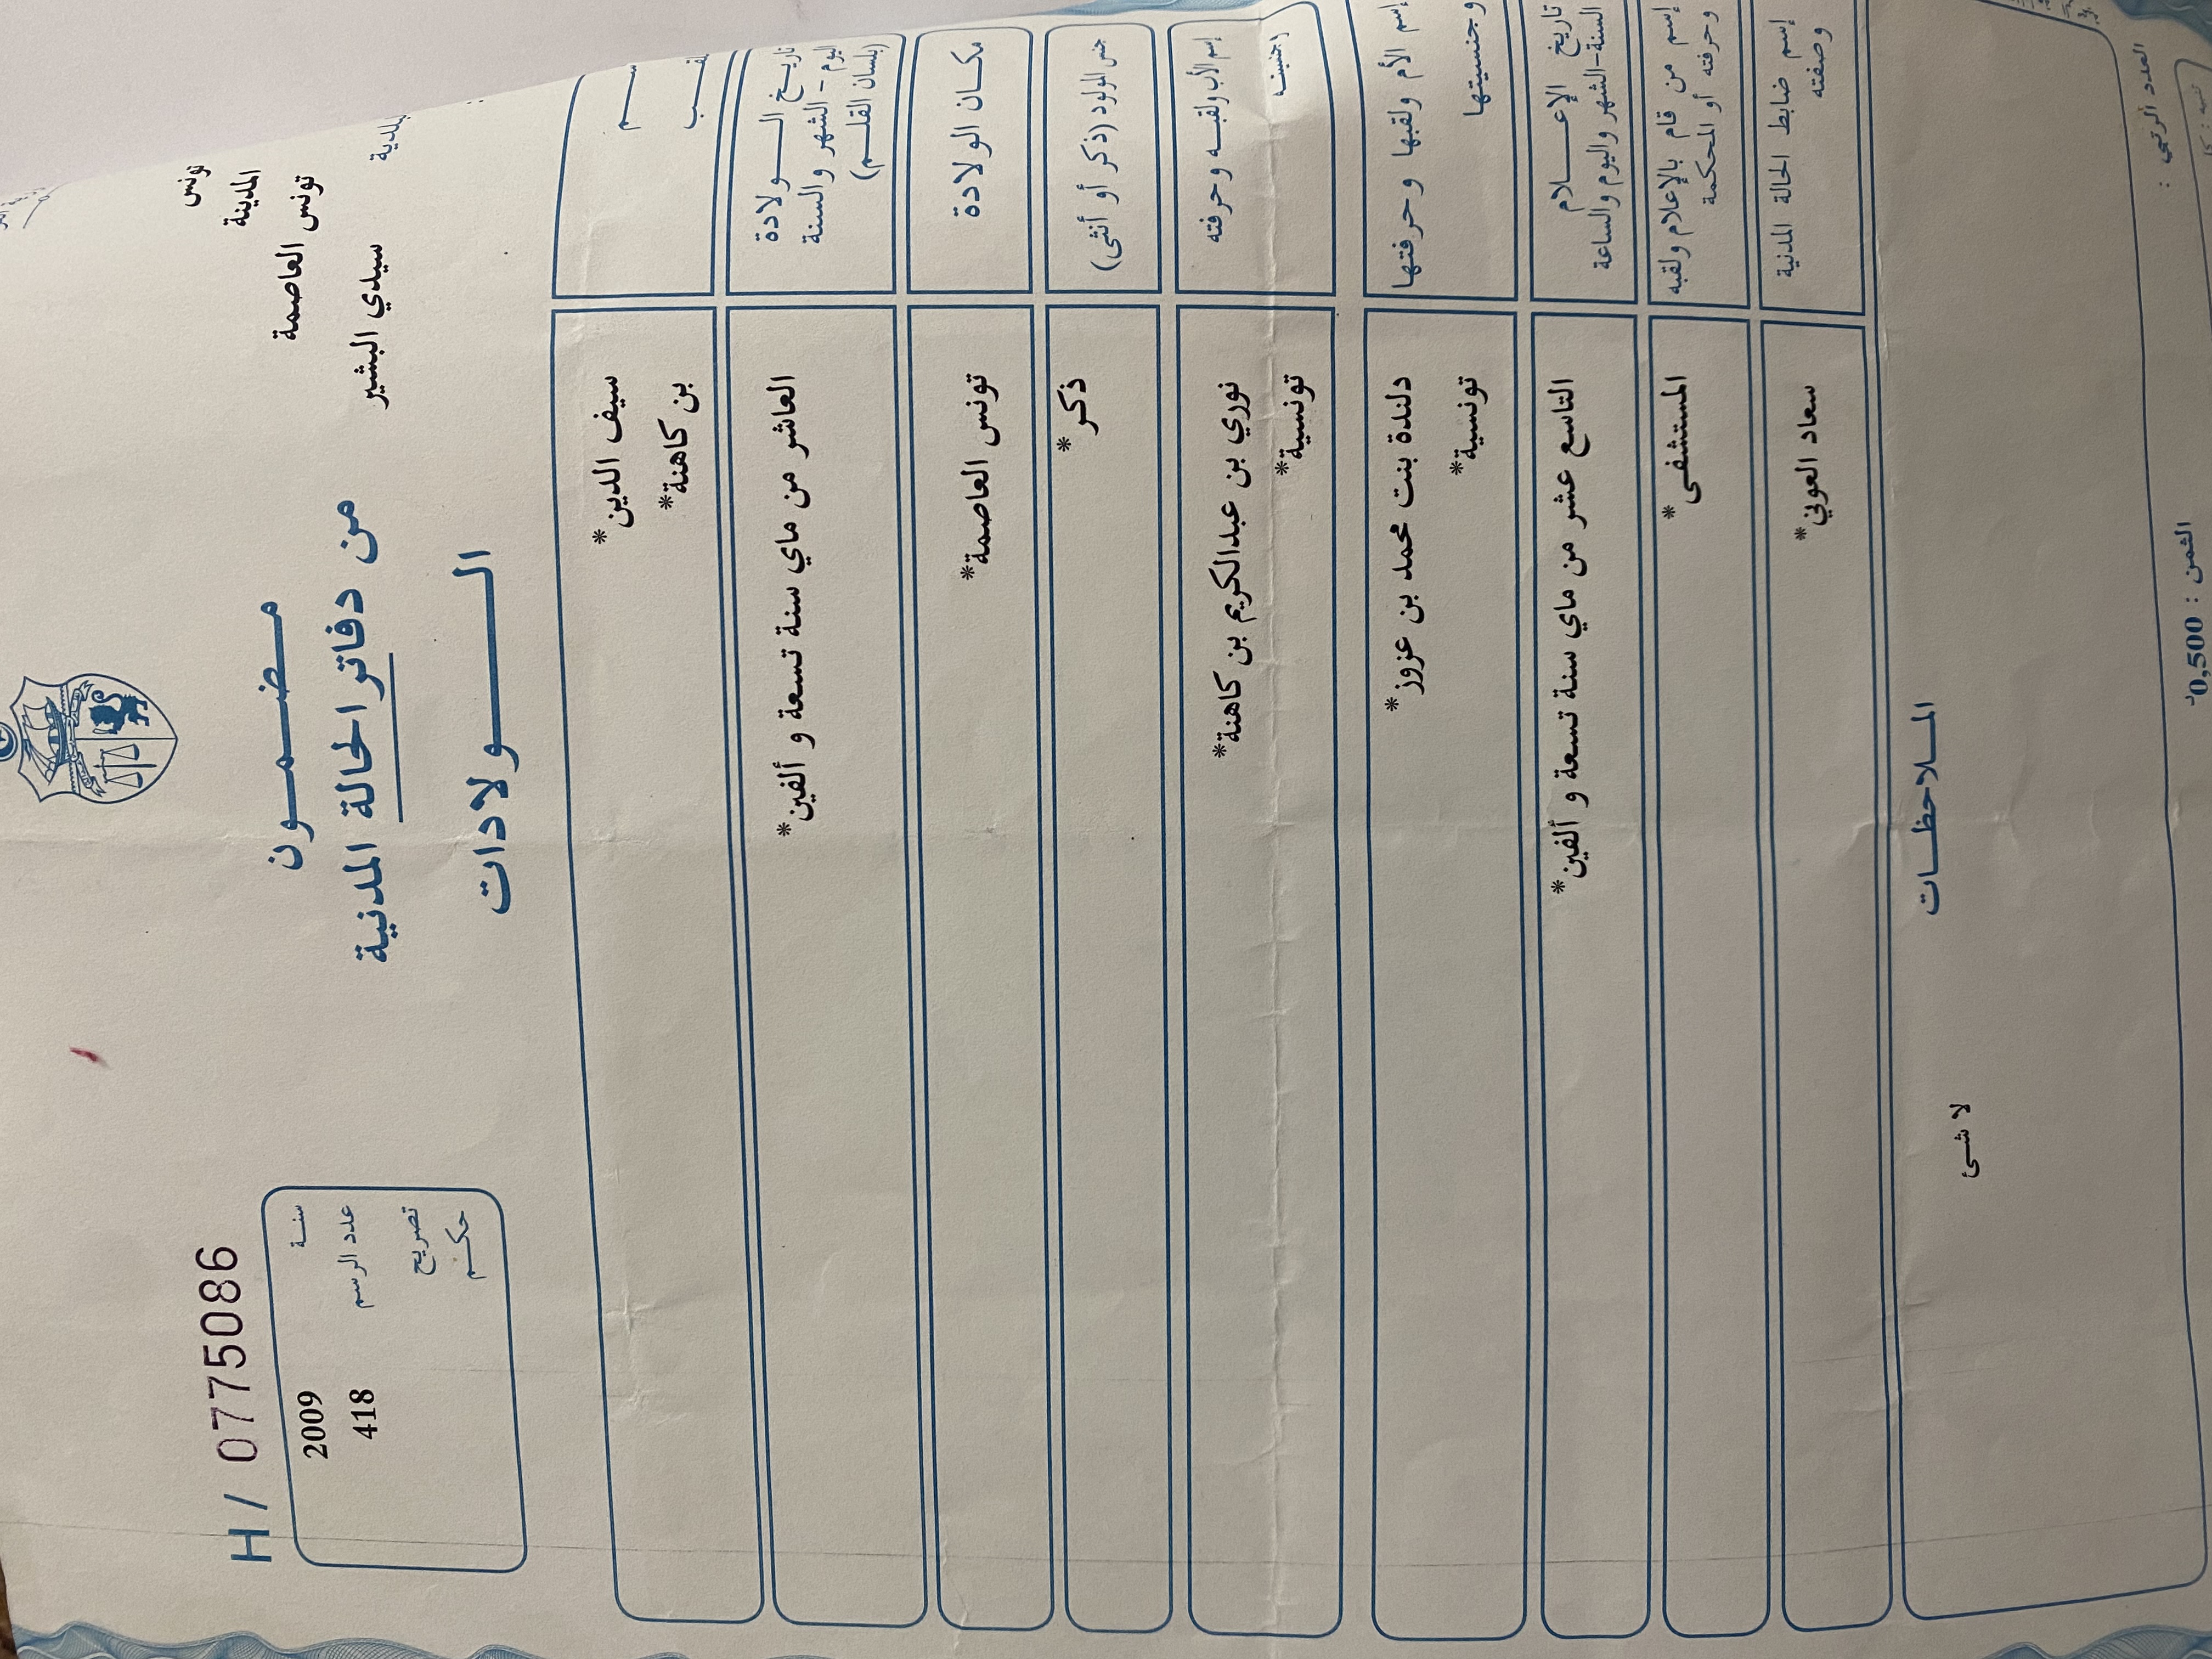 H / 0775086
سنة 2009
عدد الرسم 418
تصريح
حكم
تونس
المدينة
تونس العاصمة
بلدية سيدي البشير
مضمون
من دفاتر الحالة المدنية
الولادات
سيف الدين*
بن كاهنة*
تاريخ الولادة
اليوم - الشهر والسنة
(بلسان القلم)
العاشر من ماي سنة تسعة و ألفين*
مكان الولادة
تونس العاصمة*
جنس المولود (ذكر أو أنثى)
ذكر*
إسم الأب ولقبه وحرفته
نوري بن عبدالكريم بن كاهنة*
تونسية*
إسم الأم ولقبها وحرفتها
وجنسيتها
دلندة بنت محمد بن عزوز*
تونسية*
تاريخ الإعلام
السنة-الشهر واليوم والساعة
التاسع عشر من ماي سنة تسعة و ألفين*
إسم من قام بالإعلام ولقبه
وحرفته أو المحكمة
المستشفى*
إسم ضابط الحالة المدنية
وصفته
سعاد العوني*
الملاحظات
لا شئ
العدد الرتبي :
الثمن : 0,500د